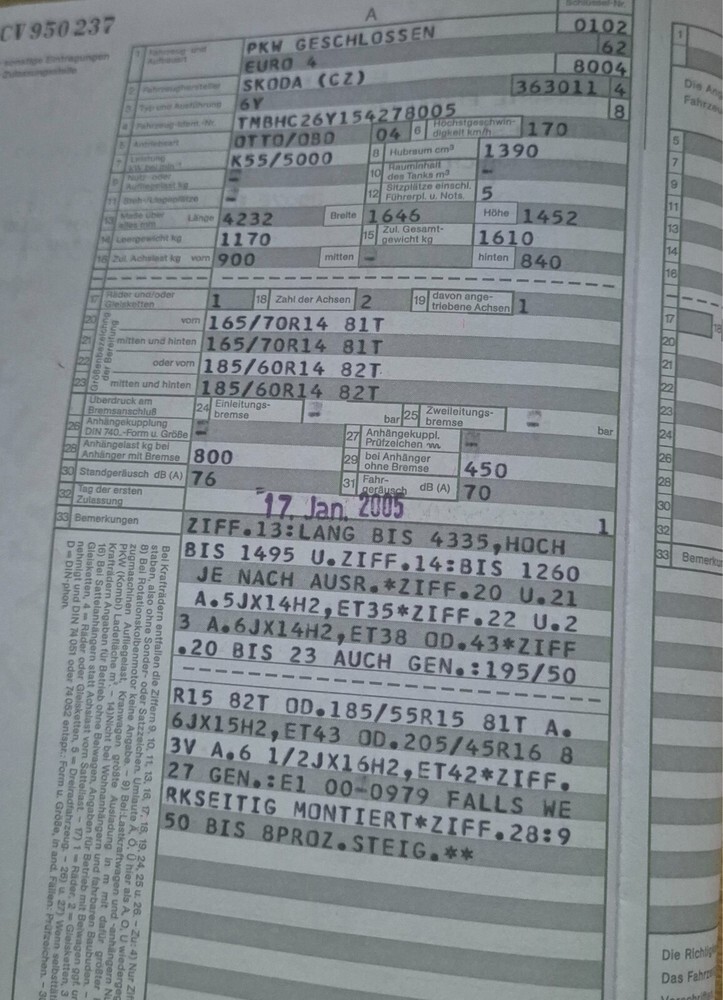 CV 950 237
A
Schlüssel-Nr.
sonstige Eintragungen
1 Fahrzeug- und Aufbauart PKW GESCHLOSSEN 0102
EURO 4 62
2 Fahrzeughersteller SKODA (CZ) 8004
3 Typ und Ausführung 6Y 363011 4
4 Fahrzeug-Ident.-Nr. TMBHC26Y154278005 8
5 Antriebsart OTTO/OBD 04 6 Höchstgeschwindigkeit km/h 170
7 Leistung K55/5000 8 Hubraum cm³ 1390
9 Nutz- oder Aufliegelast kg - 10 Rauminhalt des Tanks m³ -
11 - 12 Sitzplätze einschl. Führerpl. u. Nots. 5
13 Maße über alles mm Länge 4232 Breite 1646 Höhe 1452
14 Leergewicht kg 1170 15 Zul. Gesamtgewicht kg 1610
16 Zul. Achslast kg vorn 900 mitten - hinten 840
17 Räder und/oder Gleisketten 1 18 Zahl der Achsen 2 19 davon angetriebene Achsen 1
Größenbezeichnung der Bereifung
20 vorn 165/70R14 81T
21 mitten und hinten 165/70R14 81T
22 oder vorn 185/60R14 82T
23 mitten und hinten 185/60R14 82T
Überdruck am Bremsanschluß 24 Einleitungsbremse - bar 25 Zweileitungsbremse - bar
26 Anhängekupplung DIN 740.-Form u. Größe - 27 Anhängekuppl. Prüfzeichen -
28 Anhängelast kg bei Anhänger mit Bremse 800 29 bei Anhänger ohne Bremse 450
30 Standgeräusch dB (A) 76 31 Fahrgeräusch dB (A) 70
32 Tag der ersten Zulassung 17. Jan. 2005 1
33 Bemerkungen ZIFF.13:LANG BIS 4335,HOCH
BIS 1495 U.ZIFF.14:BIS 1260
JE NACH AUSR.*ZIFF.20 U.21
A.5JX14H2,ET35*ZIFF.22 U.2
3 A.6JX14H2,ET38 OD.43*ZIFF
.20 BIS 23 AUCH GEN.:195/50
R15 82T OD.185/55R15 81T A.
6JX15H2,ET43 OD.205/45R16 8
3V A.6 1/2JX16H2,ET42*ZIFF.
27 GEN.:E1 00-0979 FALLS WE
RKSEITIG MONTIERT*ZIFF.28:9
50 BIS 8PROZ.STEIG.**
1
Die Ang
Fahrze
5
7
9
11
13
14
16
17
20
21
22
23
24
26
28
30
32
33 Bemerku
Die Richtig
Das Fahrz